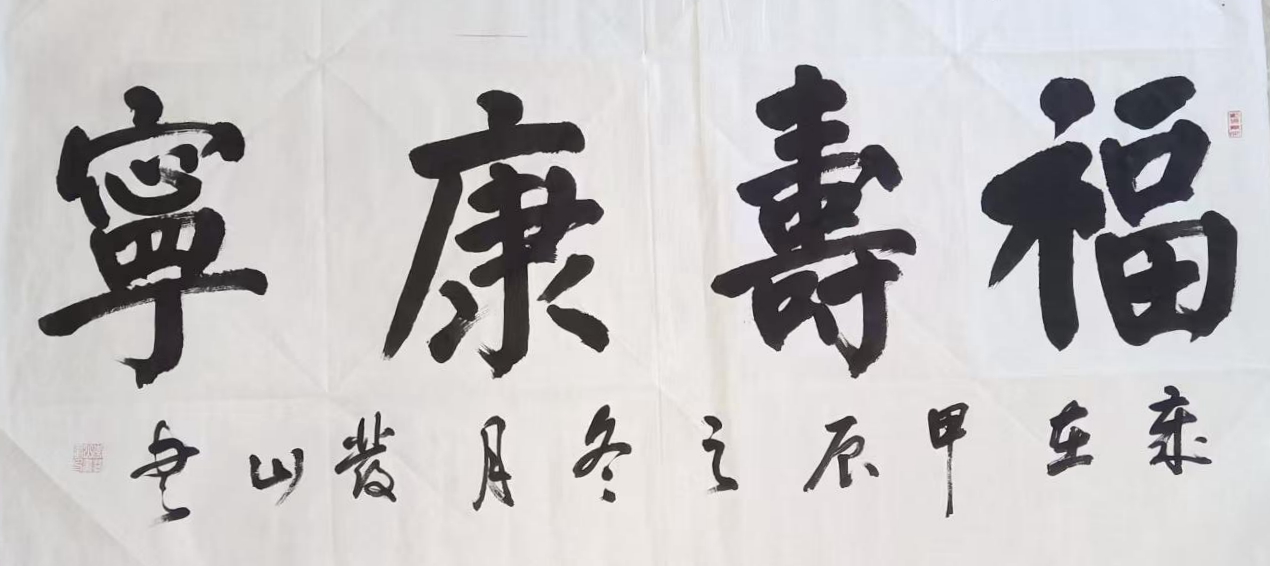 福壽康寧
歲在甲辰之冬月發山書